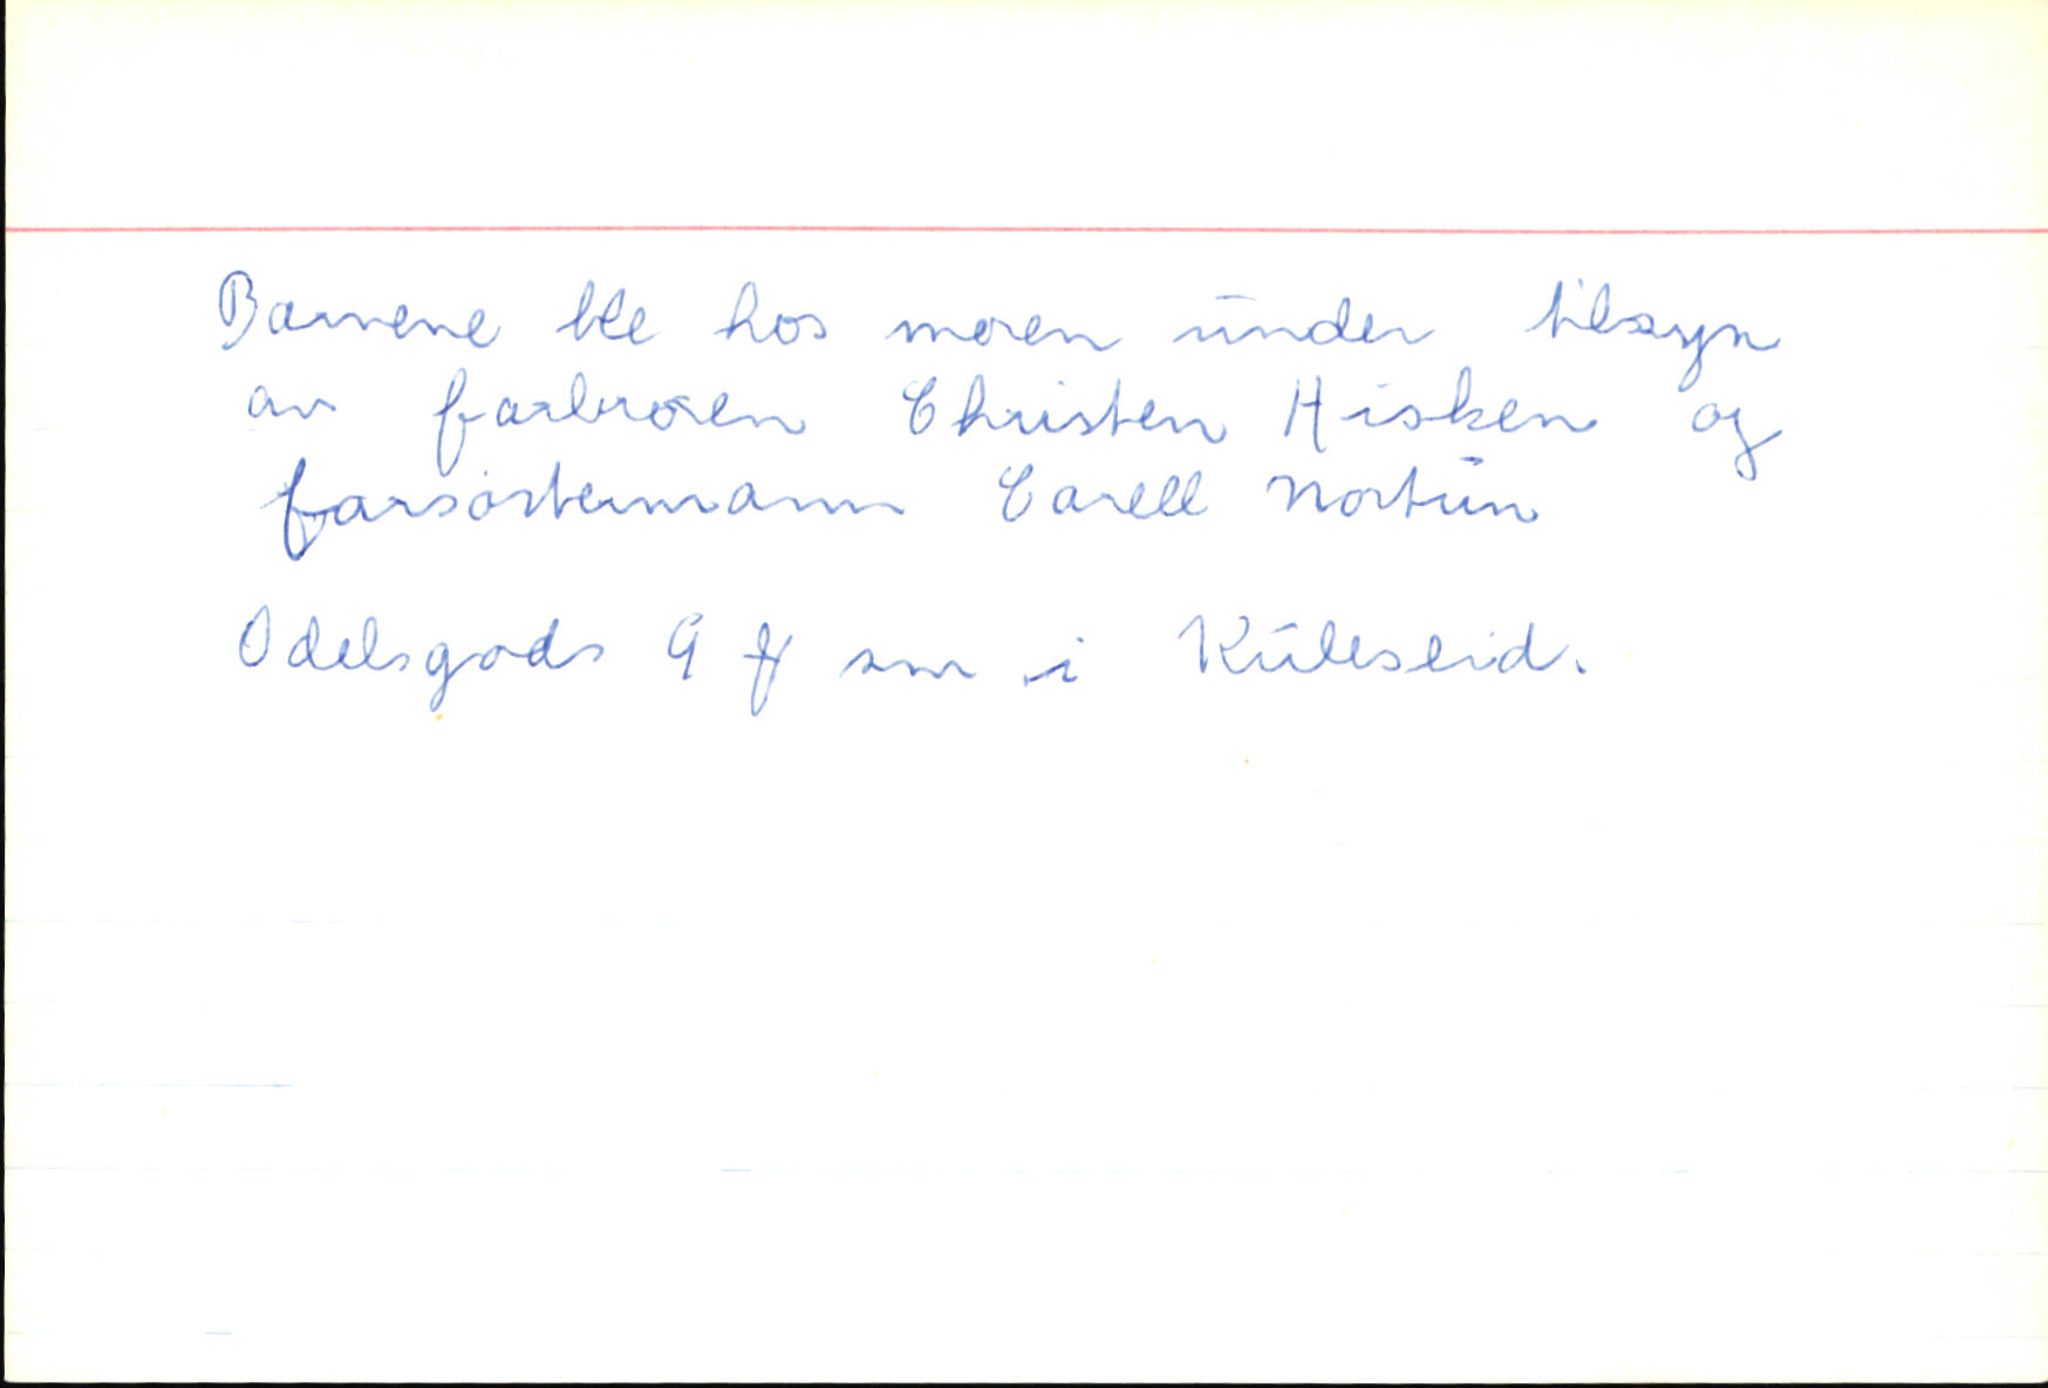 Barnene ble hos moren under tilsyn
av farbroren Christen Hisken og
farsøstermann Carell Nortun
Odelsgods 9 ℔ smr i Kuleseid.